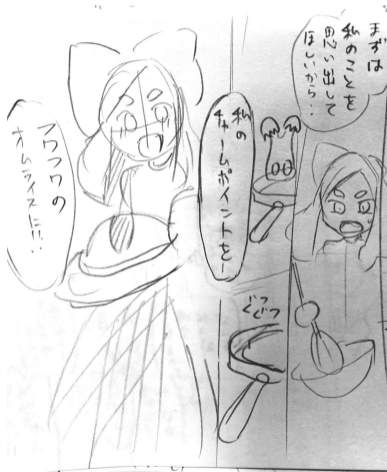 まずは
私のことを
思い出して
ほしいから‥
私の
チャームポイントをー
ぐつ
ぐつ
フワフワの
オムライスに!!‥